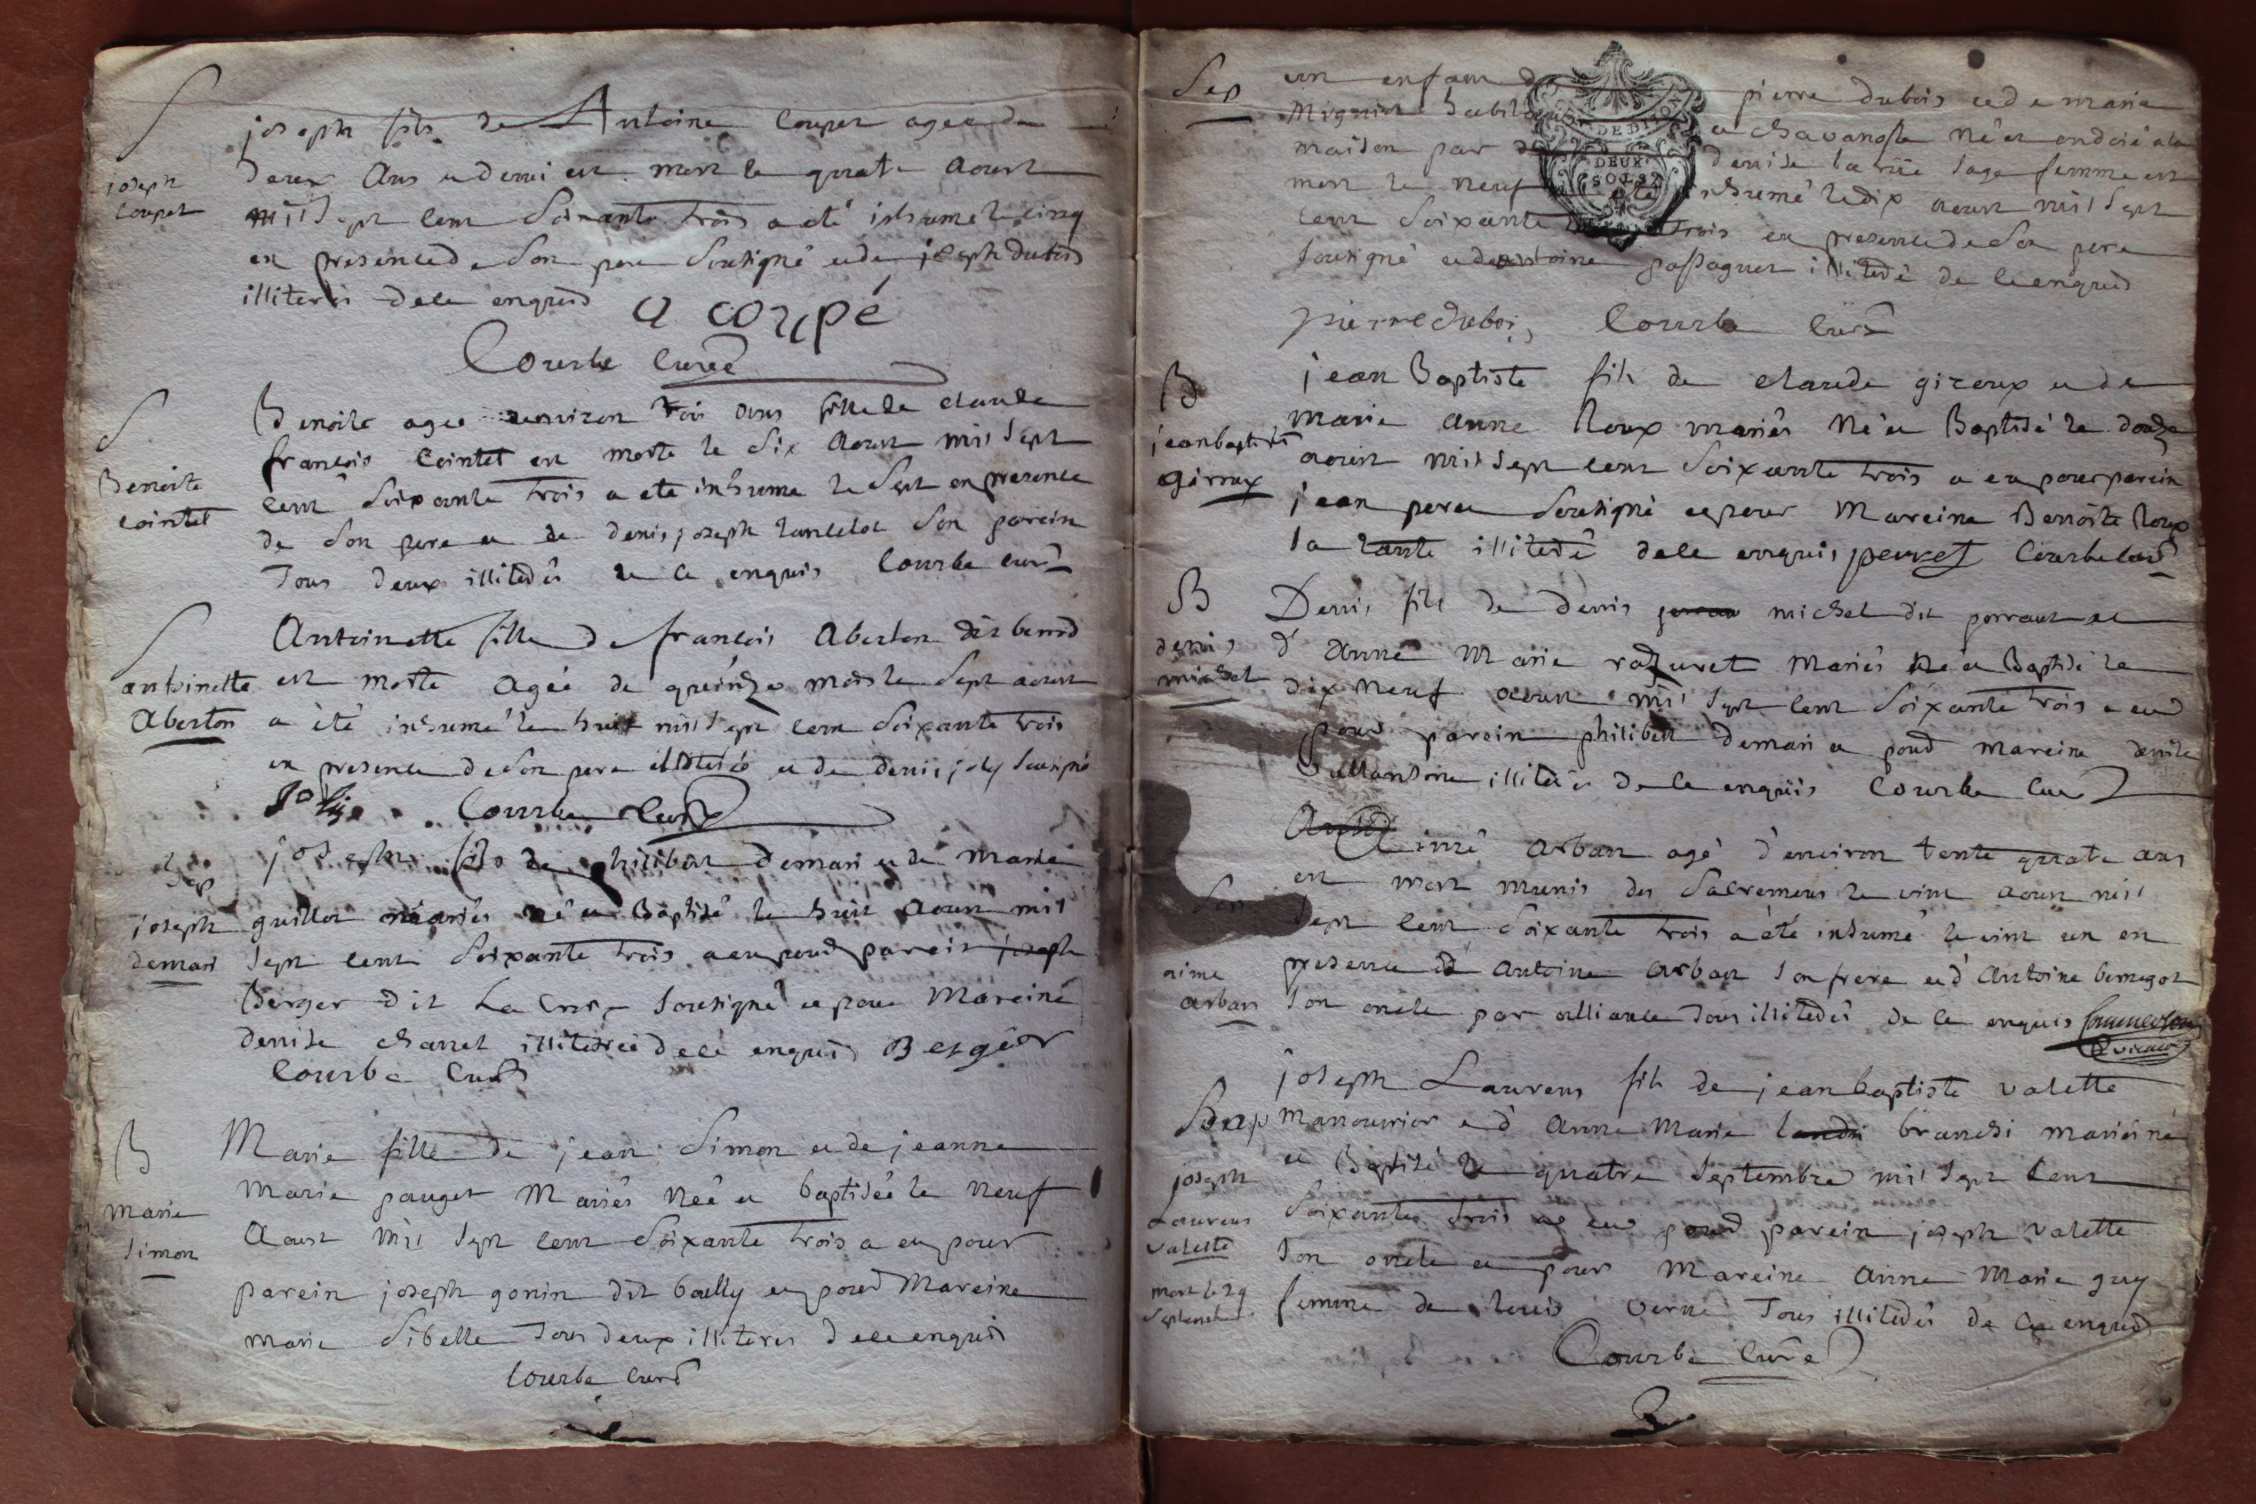 S
joseph
Coupet
joseph fils de Antoine Coupet agee de
deux Ans et demi est mort le quatre Aoust
mil Sept Cent Soixante trois a eté inhumé le cinq
en presence de Son pere Soutigné et de joseph dubois
illiteres de ce enquis a coupé
Courbe Curé
S
Benoite
Cointet
Benoite agee denviron trois ans fille de claude
francois Cointet est morte le Six Aoust mil Sept
Cent Soixante trois a eté inhumé le Sept en presence
de Son pere et de denis joseph lancelot Son parein
Tous deux illiterés de ce enquis Courbe curé
S
antoinette
Aberton
Antoinette fille de francois Aberton dit
est morte Agée de queinze mois le Sept aoust
a été inhumé le huit mil Sept cent Soixante trois
en presence de Son pere illiteré et de denis joly Soutigné
Joly Courbe Curé
B
joseph
demari
joseph fils de philibert demari et de marie
guillot mariés né et Baptisé le huit Aoust mil
Sept cent Soixante trois a eu pour parein joseph
Berger dit La Soutigné et pour Mareine
denise charret illiterée de ce enquis Bergéor
Courbe Curé
B
Marie
Simon
Marie fille de jean Simon et de jeanne
Marie pauget Mariés Neé et baptisée le Neuf
Aoust Mil Sept cent Soixante trois a eu pour
parein joseph gonin dit bailly et pour Mareine
Marie Sibelle Tous deux illiteres de ce enquis
Courbe Curé
Sep
un enfant de pierre dubois et de marie
Migniot et chavanosse Né et ondoié a la
maison par denise la rüe Sage femme est
mort le Neuf a eté inhumé le dix Aoust mil Sept
Cent Soixante trois en presence de Son pere
Soutigné et de antoine passaquet illiteré de ce enquis
GEN DE DIJON
DEUX
SOLS
pierre duboi, Courbe Curé
B
jean baptiste
giroux
jean Baptiste fils de claude giroux et de
Marie Anne Roux mariés Né et Baptisé le douze
aoust mil Sept Cent Soixante trois a eu pour parein
jean peret Soutigné et pour Mareine Benoite Roux
Sa tante illiterée de ce enquis perret Courbe curé
B
denis
michel
Denis fils de denis michel dit porraut et
d'Anne Marie razuret Mariés Né et Baptisé le
dix Neuf aoust mil Sept cent Soixante trois a eu
pour parein philibert demari et pour Mareine denise
illiterés de ce enquis Courbe Curé
aime
arban
Aimé Arban agé d'environ trente quatre ans
est mort munis des Sacremens le vint aoust mil
Sept cent Soixante trois a été inhumé le vint un en
presence d'Antoine Arban Son frere et d'Antoine bernegot
Son oncle par alliance Tous illiterés de ce enquis
vicaire
B
joseph
Laurens
valette
mort le 29
Septembre
joseph Laurens fils de jean baptiste valette
Manouvrier et d'Anne Marie branchi mariés né
et Baptisé le quatre Septembre mil Sept Cent
Soixante trois a eu pour parein joseph valette
Son oncle et pour Mareine Anne Marie guy
femme de louis verne Tous illiterés de ce enquis
Courbe Curé